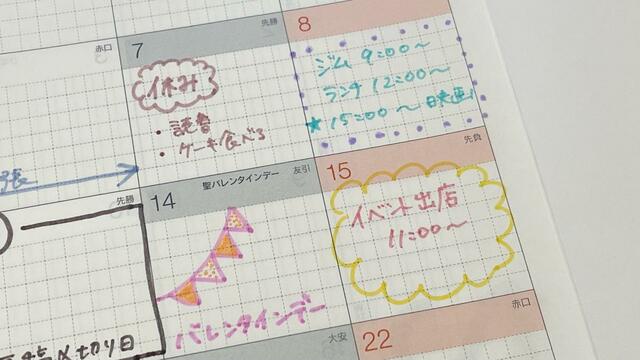 赤口
7
先勝
8
休み
・読書
・ケーキ食べる
ジム 9:00~
ランチ 12:00~
★15:00~映画
先勝
14
聖バレンタインデー
友引
15
先負
バレンタインデー
イベント出店
11:00~
〆切り日
大安
22
赤口